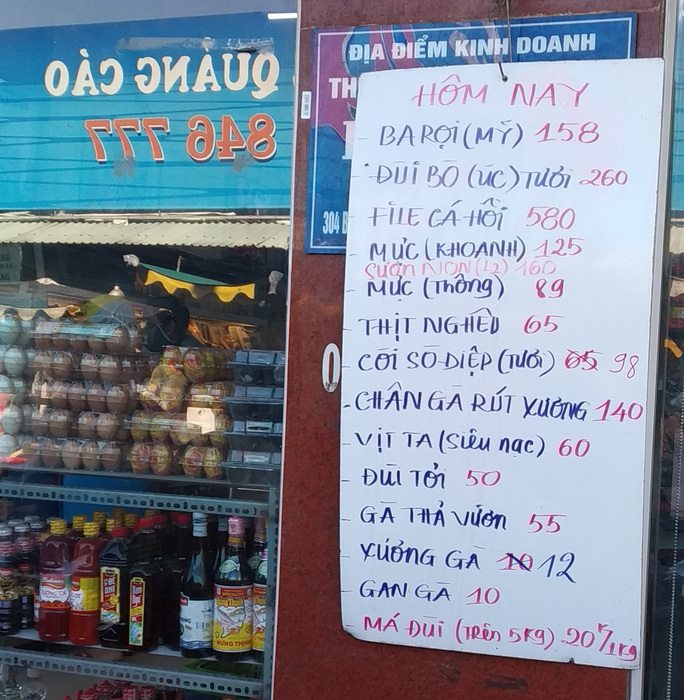 QUANG CÁO
846 777
ĐỊA ĐIỂM KINH DOANH
TH
304
HÔM NAY
- BA RỌI (MỸ) 158
- ĐÙI BÒ (ÚC) TƯƠI 260
- FILE CÁ HỒI 580
- MỰC (KHOANH) 125
SƯỜN NON (L2) 160
- MỰC (Thông) 89
- THỊT NGHÊU 65
- CỒI SÒ ĐIỆP (TƯƠI) 98
- CHÂN GÀ RÚT XƯƠNG 140
- VỊT TA (Siêu nạc) 60
- ĐÙI TỎI 50
- GÀ THẢ VƯỜN 55
- XƯƠNG GÀ 12
- GAN GÀ 10
- MÁ ĐÙI (Trên 5kg) 20K/1kg